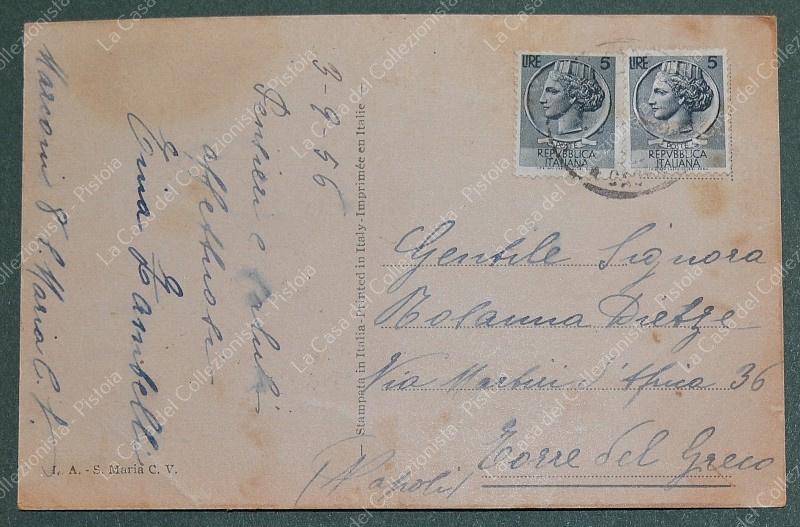 3-9-56
Pensieri e saluti
affettuosi
Marconi 8 S. Maria C. V.
I. A. - S. Maria C. V.
Stampata in Italia-Printed in Italy-Imprimée en Italie
LIRE 5
POSTE
REPVBBLICA
ITALIANA
LIRE 5
POSTE
REPVBBLICA
ITALIANA
Gentile Signora
Rosanna Dietze
Via Martiri d'Africa 36
Torre del Greco
(Napoli)
La Casa del Collezionista - Pistoia